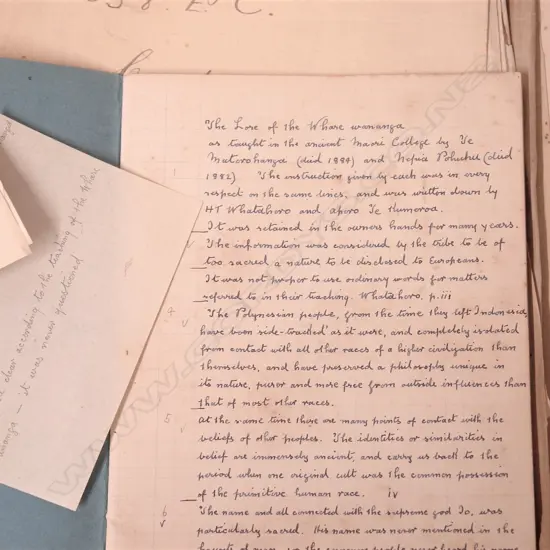 The Lore of the Whare wananga
as taught in the ancient Maori College by Te
Matorohanga (died 1884) and Nepia Pohuhu (died
1882). The instruction given by each was in every
respect on the same lines, and was written down by
HT Whatahoro and Aporo Te Kumeroa.
It was retained in the owners hands for many years.
The information was considered by the tribe to be of
too sacred a nature to be disclosed to Europeans.
It was not proper to use ordinary words for matters
referred to in their teaching. Whatahoro. p. iii
The Polynesian people, from the time they left Indonesia,
have been side-tracked as it were, and completely isolated
from contact with all other races of a higher civilization than
themselves, and have preserved a philosophy unique in
its nature, purer and more free from outside influences than
that of most other races.
5
At the same time there are many points of contact with the
beliefs of other peoples. The identities or similarities in
belief are immensely ancient, and carry us back to the
period when one original cult was the common possession
of the primitive human race. iv
6
The name and all connected with the supreme god Io, was
particularly sacred. His name was never mentioned in the
clear according to the teaching of the Whare
wananga — it was never questioned